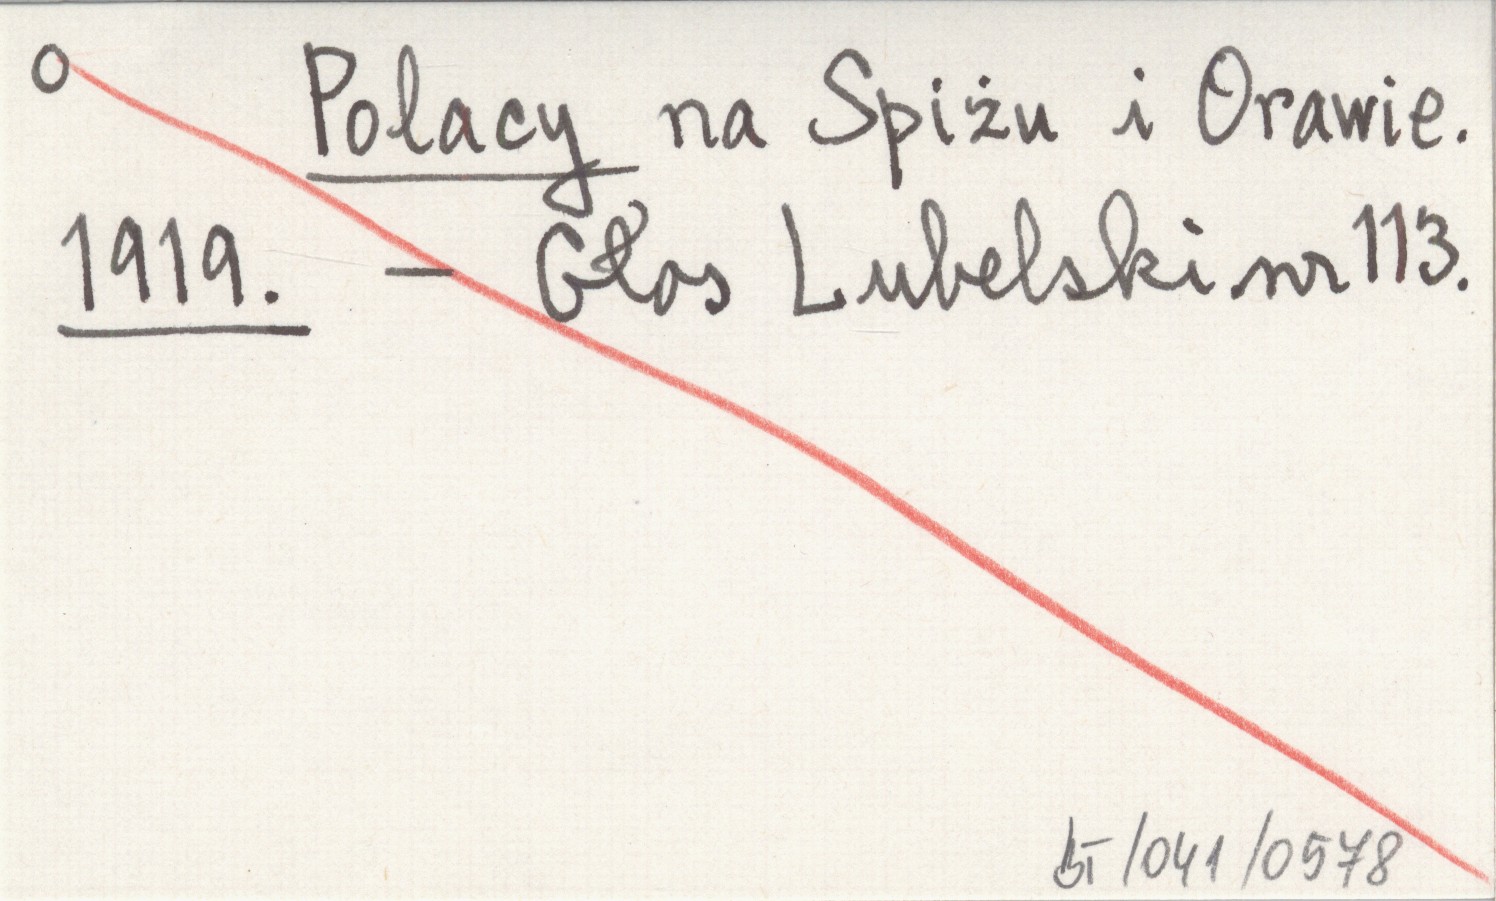 O Polacy na Spiżu i Orawie.
1919. – Głos Lubelski nr 113.
/041/0578